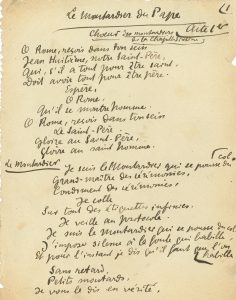 Le Moutardier du Pape
Acte 1er
Choeur des moutardiers
de la Chapelle
O Rome, reçois dans ton sein
Jean Huitième, notre Saint-Père,
Qui, s'il a tout pour être saint,
Doit avoir tout pour être père.
Espère,
O Rome,
Qu'il se montre homme.
O Rome, reçois dans ton sein
Le Saint-Père
Gloire au Saint-Père,
Gloire au saint homme.
Le Moutardier
Je suis le Moutardier qui se pousse du col
Grand-maître des cérémonies,
Condiment des cérémonies,
Je colle
Sur tout des étiquettes infinies.
Je veille au protocole.
Je suis le moutardier qui se pousse du col
J'impose silence à la foule qui babille
Et pour l'instant je dis qu'il faut que l'on
s'habille
Sans retard,
Petits moutards,
Je vous le dis en vérité,